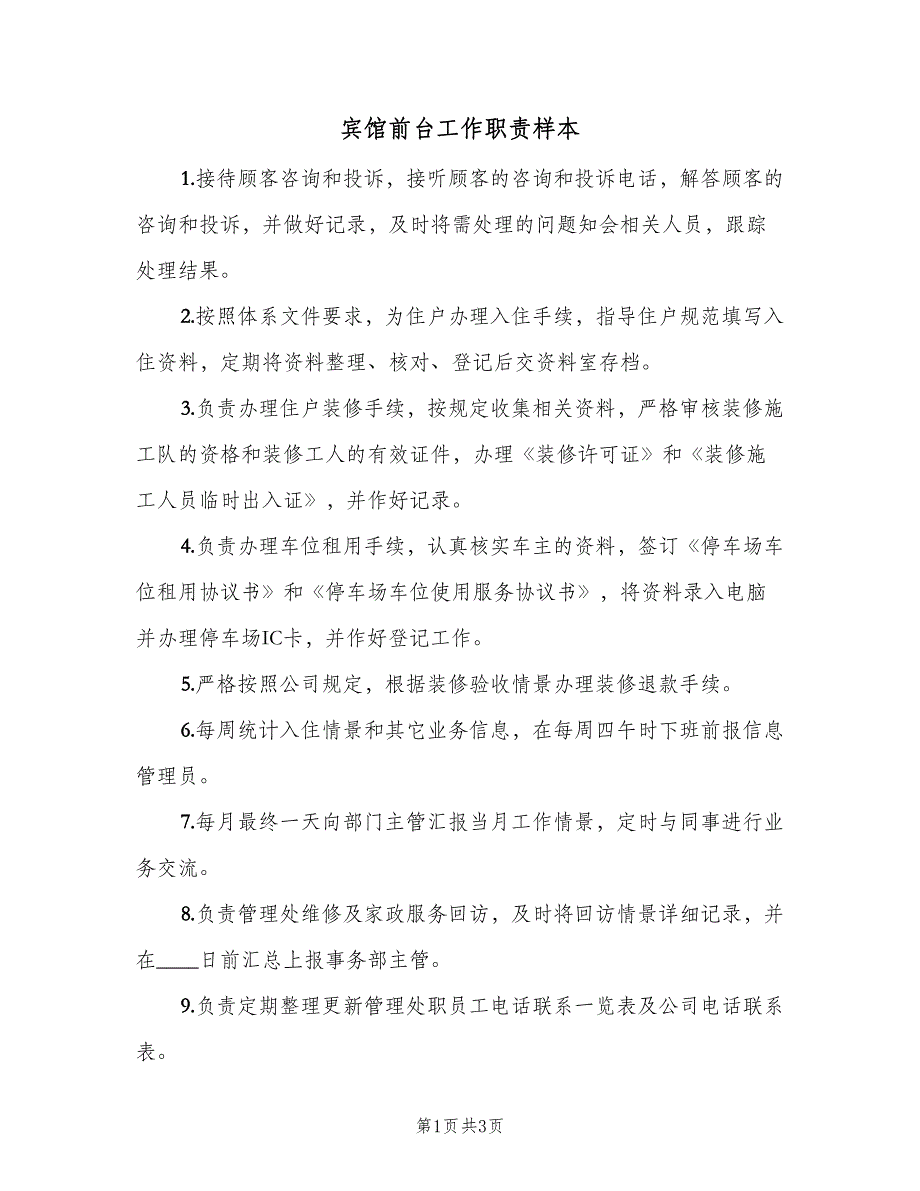 宾馆前台工作职责样本
1.接待顾客咨询和投诉，接听顾客的咨询和投诉电话，解答顾客的
咨询和投诉，并做好记录，及时将需处理的问题知会相关人员，跟踪
处理结果。
2.按照体系文件要求，为住户办理入住手续，指导住户规范填写入
住资料，定期将资料整理、核对、登记后交资料室存档。
3.负责办理住户装修手续，按规定收集相关资料，严格审核装修施
工队的资格和装修工人的有效证件，办理《装修许可证》和《装修施
工人员临时出入证》，并作好记录。
4.负责办理车位租用手续，认真核实车主的资料，签订《停车场车
位租用协议书》和《停车场车位使用服务协议书》，将资料录入电脑
并办理停车场IC卡，并作好登记工作。
5.严格按照公司规定，根据装修验收情景办理装修退款手续。
6.每周统计入住情景和其它业务信息，在每周四午时下班前报信息
管理员。
7.每月最终一天向部门主管汇报当月工作情景，定时与同事进行业
务交流。
8.负责管理处维修及家政服务回访，及时将回访情景详细记录，并
在____日前汇总上报事务部主管。
9.负责定期整理更新管理处职员工电话联系一览表及公司电话联系
表。
第1页共3页